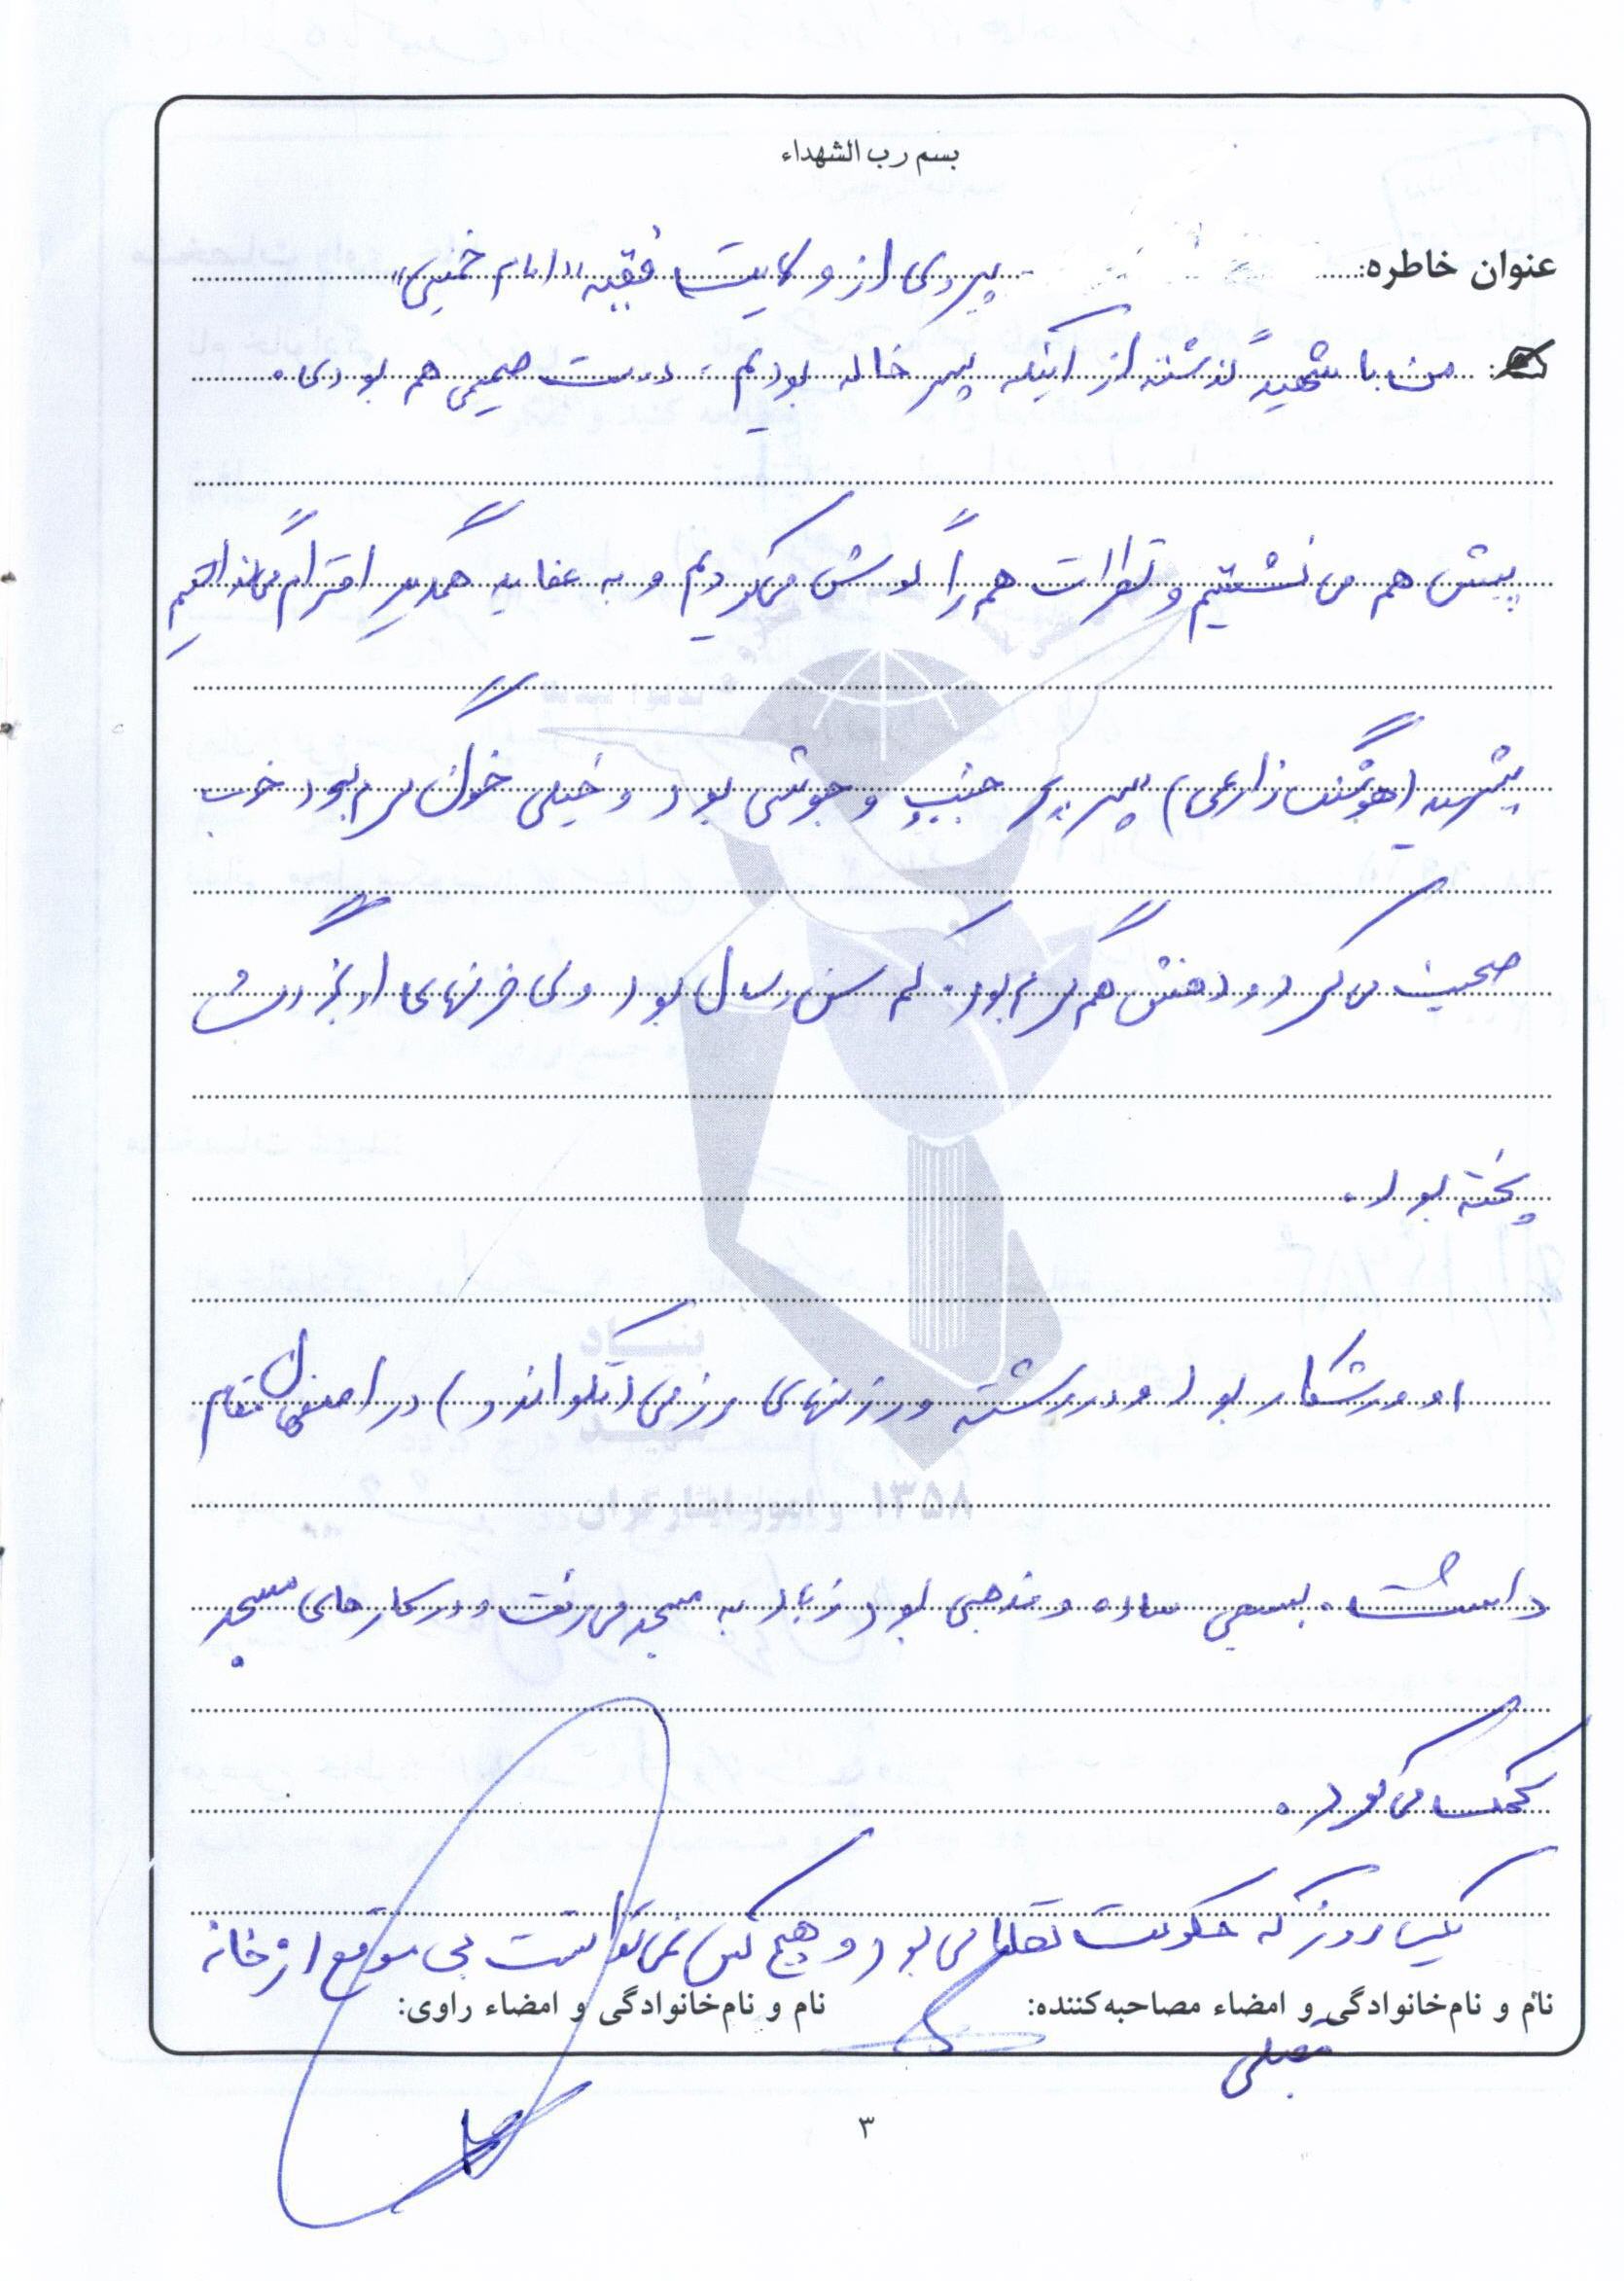 بسم رب الشهداء
عنوان خاطره: پیروی از ولایت فقیه "امام خمینی"
من با شهید گذشته از اینکه پسر خاله بودیم، دوست صمیمی هم بودیم.
پیش هم می نشستیم و نظرات هم را گوش می کردیم و به عقاید همدیگر احترام می گذاشتیم
شهید (هوشنگ زارعی) پسر پر جنب و جوشی بود و خیلی خون گرم بود خوب
صحبت می کرد و دهنش هم گرم بود. کم سن و سال بود ولی حرفهای او بزرگ و
پخته بود.
او ورزشکار بود و در رشته ورزشهای رزمی (تکواندو) در اصفهان مقام
داشت. بسیجی ساده و مذهبی بود زیاد به مسجد می رفت و در کارهای مسجد
کمک می کرد.
یک روز که حکومت نظامی بود و هیچ کس نمی توانست بی موقع از خانه
نام و نام‌خانوادگی و امضاء مصاحبه‌کننده: نام و نام‌خانوادگی و امضاء راوی:
۳
بنیاد
شهید
و امور ایثارگران ۱۳۵۸